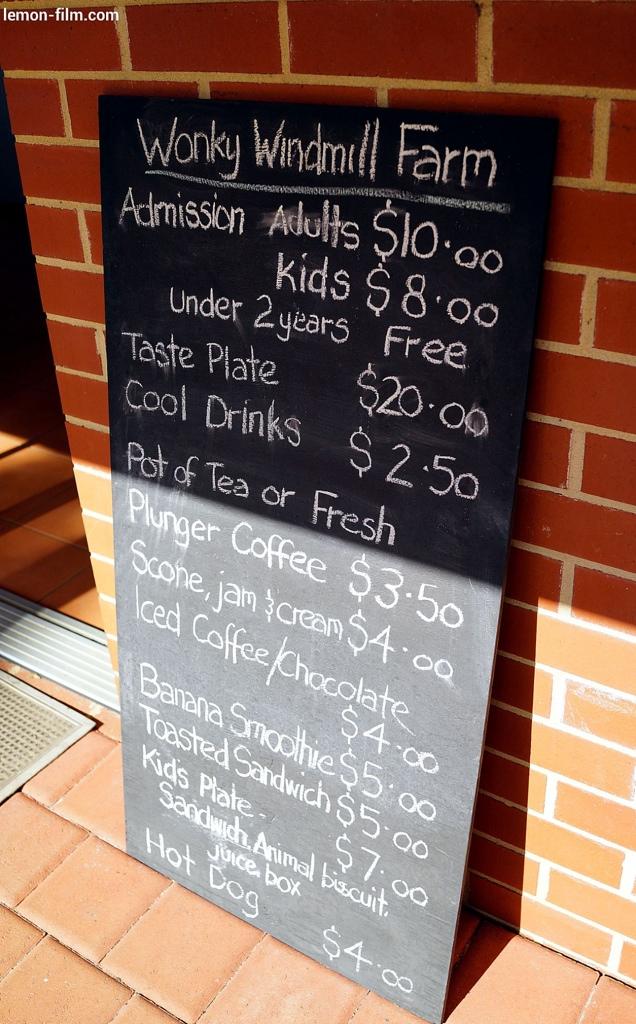 lemon-film.com
Wonky Windmill Farm
Admission Adults $10.00
Kids $8.00
Under 2 years Free
Taste Plate $20.00
Cool Drinks $2.50
Pot of Tea or Fresh
Plunger Coffee $3.50
Scone, jam & cream $4.00
Iced Coffee/Chocolate
$4.00
Banana Smoothie $5.00
Toasted Sandwich $5.00
Kid's Plate - $7.00
Sandwich, Animal biscuit,
juice box
Hot Dog $4.00